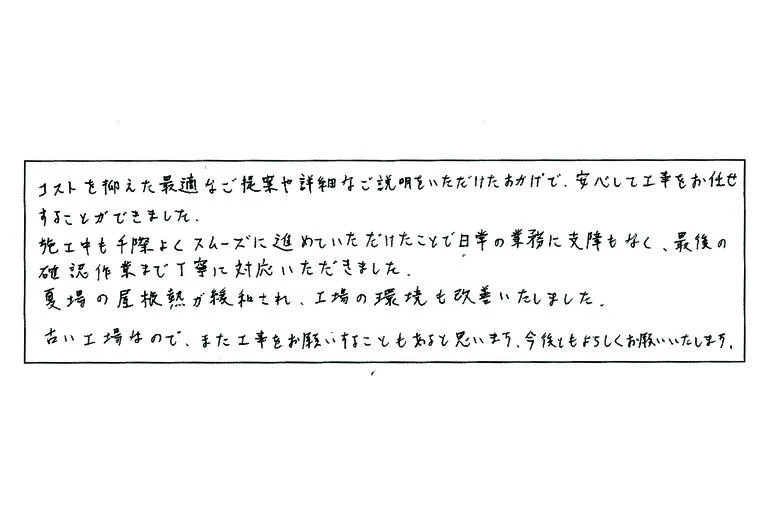 コストを抑えた最適なご提案や詳細なご説明をいただけたおかげで、安心して工事をお任せ
することができました。
施工中も手際よくスムーズに進めていただけたことで日常の業務に支障もなく、最後の
確認作業まで丁寧に対応いただきました。
夏場の屋根熱が緩和され、工場の環境も改善いたしました。
古い工場なので、また工事をお願いすることもあると思います、今後ともよろしくお願いいたします。